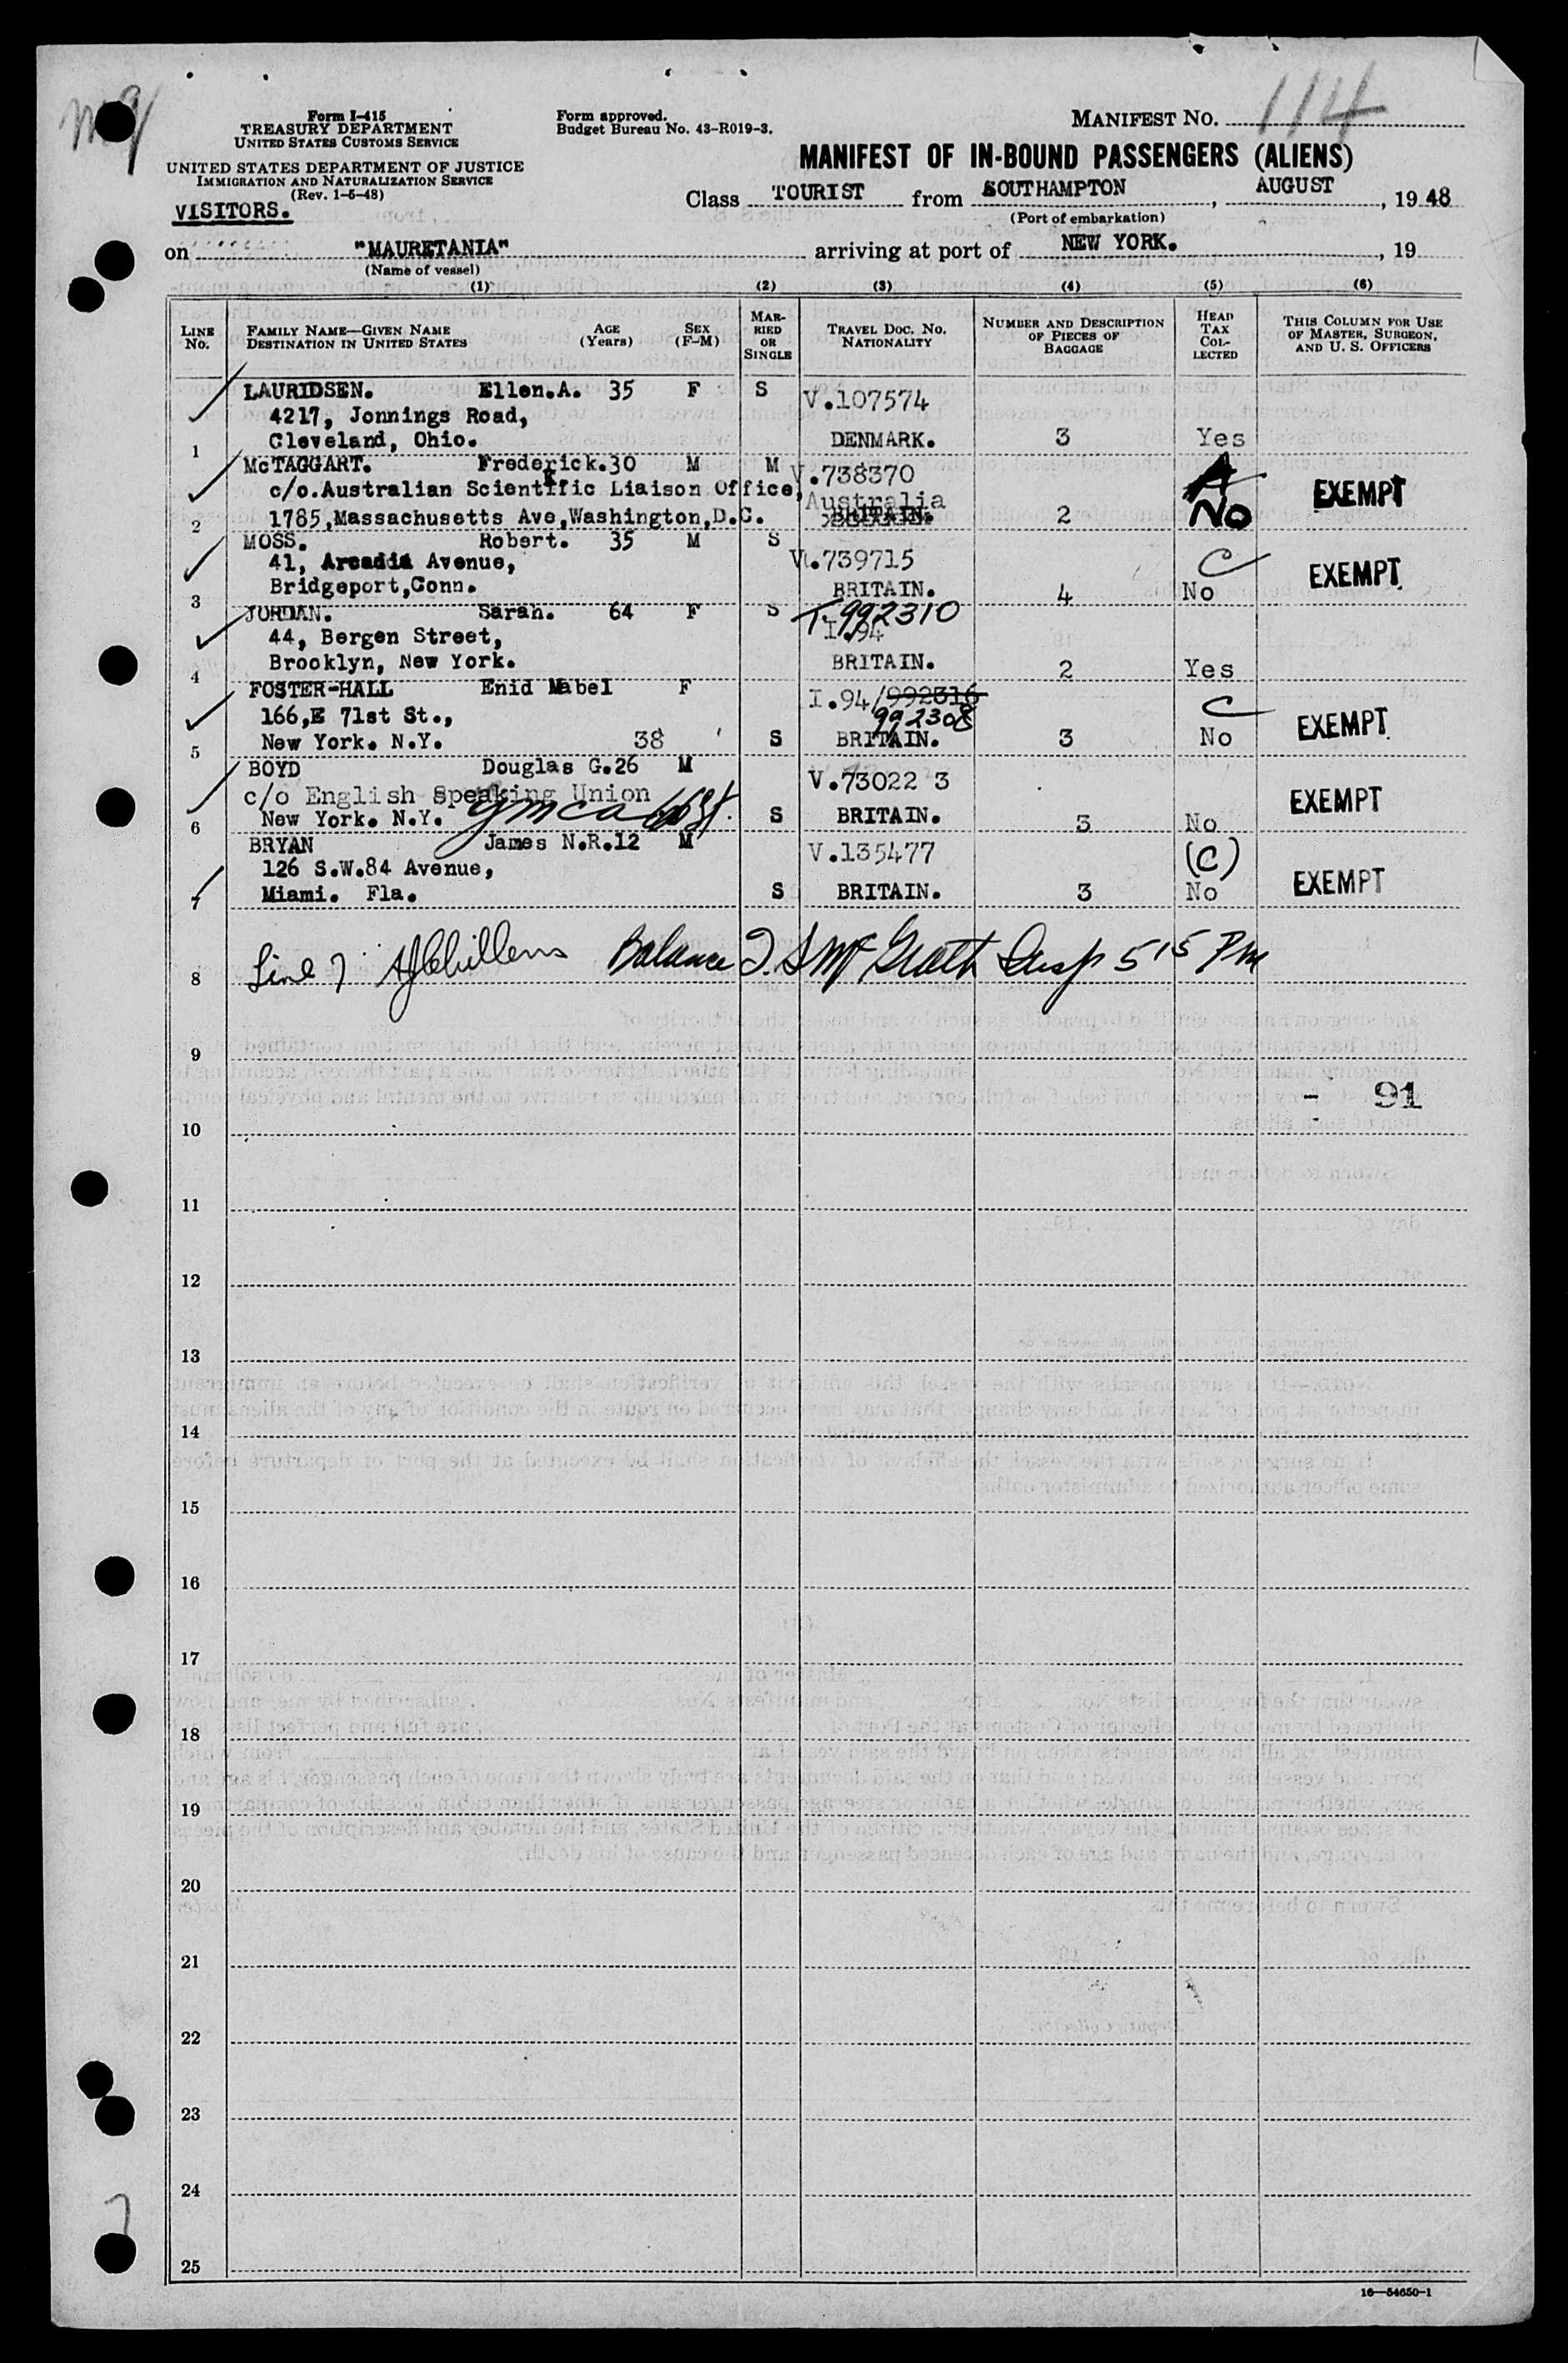 114
Form I-415
TREASURY DEPARTMENT
UNITED STATES CUSTOMS SERVICE
UNITED STATES DEPARTMENT OF JUSTICE
IMMIGRATION AND NATURALIZATION SERVICE
(Rev. 1-5-48)
VISITORS.
Form approved.
Budget Bureau No. 43-R019-3.
MANIFEST NO.
MANIFEST OF IN-BOUND PASSENGERS (ALIENS)
Class TOURIST from SOUTHAMPTON, AUGUST, 1948
(Port of embarkation)
on "MAURETANIA" arriving at port of NEW YORK., 19
(Name of vessel)
(1) (2) (3) (4) (5) (6)
LINE NO. FAMILY NAME—GIVEN NAME DESTINATION IN UNITED STATES AGE (Years) SEX (F-M) MARRIED OR SINGLE TRAVEL DOC. NO. NATIONALITY NUMBER AND DESCRIPTION OF PIECES OF BAGGAGE HEAD TAX COLLECTED THIS COLUMN FOR USE OF MASTER, SURGEON, AND U. S. OFFICERS
LAURIDSEN. Ellen.A. 35 F S V.107574
4217, Jonnings Road,
1 Cleveland, Ohio. DENMARK. 3 Yes
McTAGGART. Frederick.30 M M V.738370 A
K.
c/o.Australian Scientific Liaison Office, Australia EXEMPT
2 1785,Massachusetts Ave,Washington,D.C. BRITAIN. 2 No
MOSS. Robert. 35 M S V.739715 C
41, Arcadia Avenue, EXEMPT
3 Bridgeport,Conn. BRITAIN. 4 No
JORDAN. Sarah. 64 F S T-992310
44, Bergen Street, I.94
4 Brooklyn, New York. BRITAIN. 2 Yes
FOSTER-HALL Enid Mabel F I.94/992316 C
166,E 71st St., 992308 EXEMPT
5 New York. N.Y. 38 S BRITAIN. 3 No
BOYD Douglas G.26 M V.73022 3
c/o English Speaking Union EXEMPT
6 New York. N.Y. ymca S BRITAIN. 3 No
BRYAN James N.R.12 M V.135477 (C)
126 S.W.84 Avenue, EXEMPT
7 Miami. Fla. S BRITAIN. 3 No
8 Line 7 Balance McGrath Insp 5 15 PM
9
- 91
10
11
12
13
14
15
16
17
18
19
20
21
22
23
24
25
16—54650-1